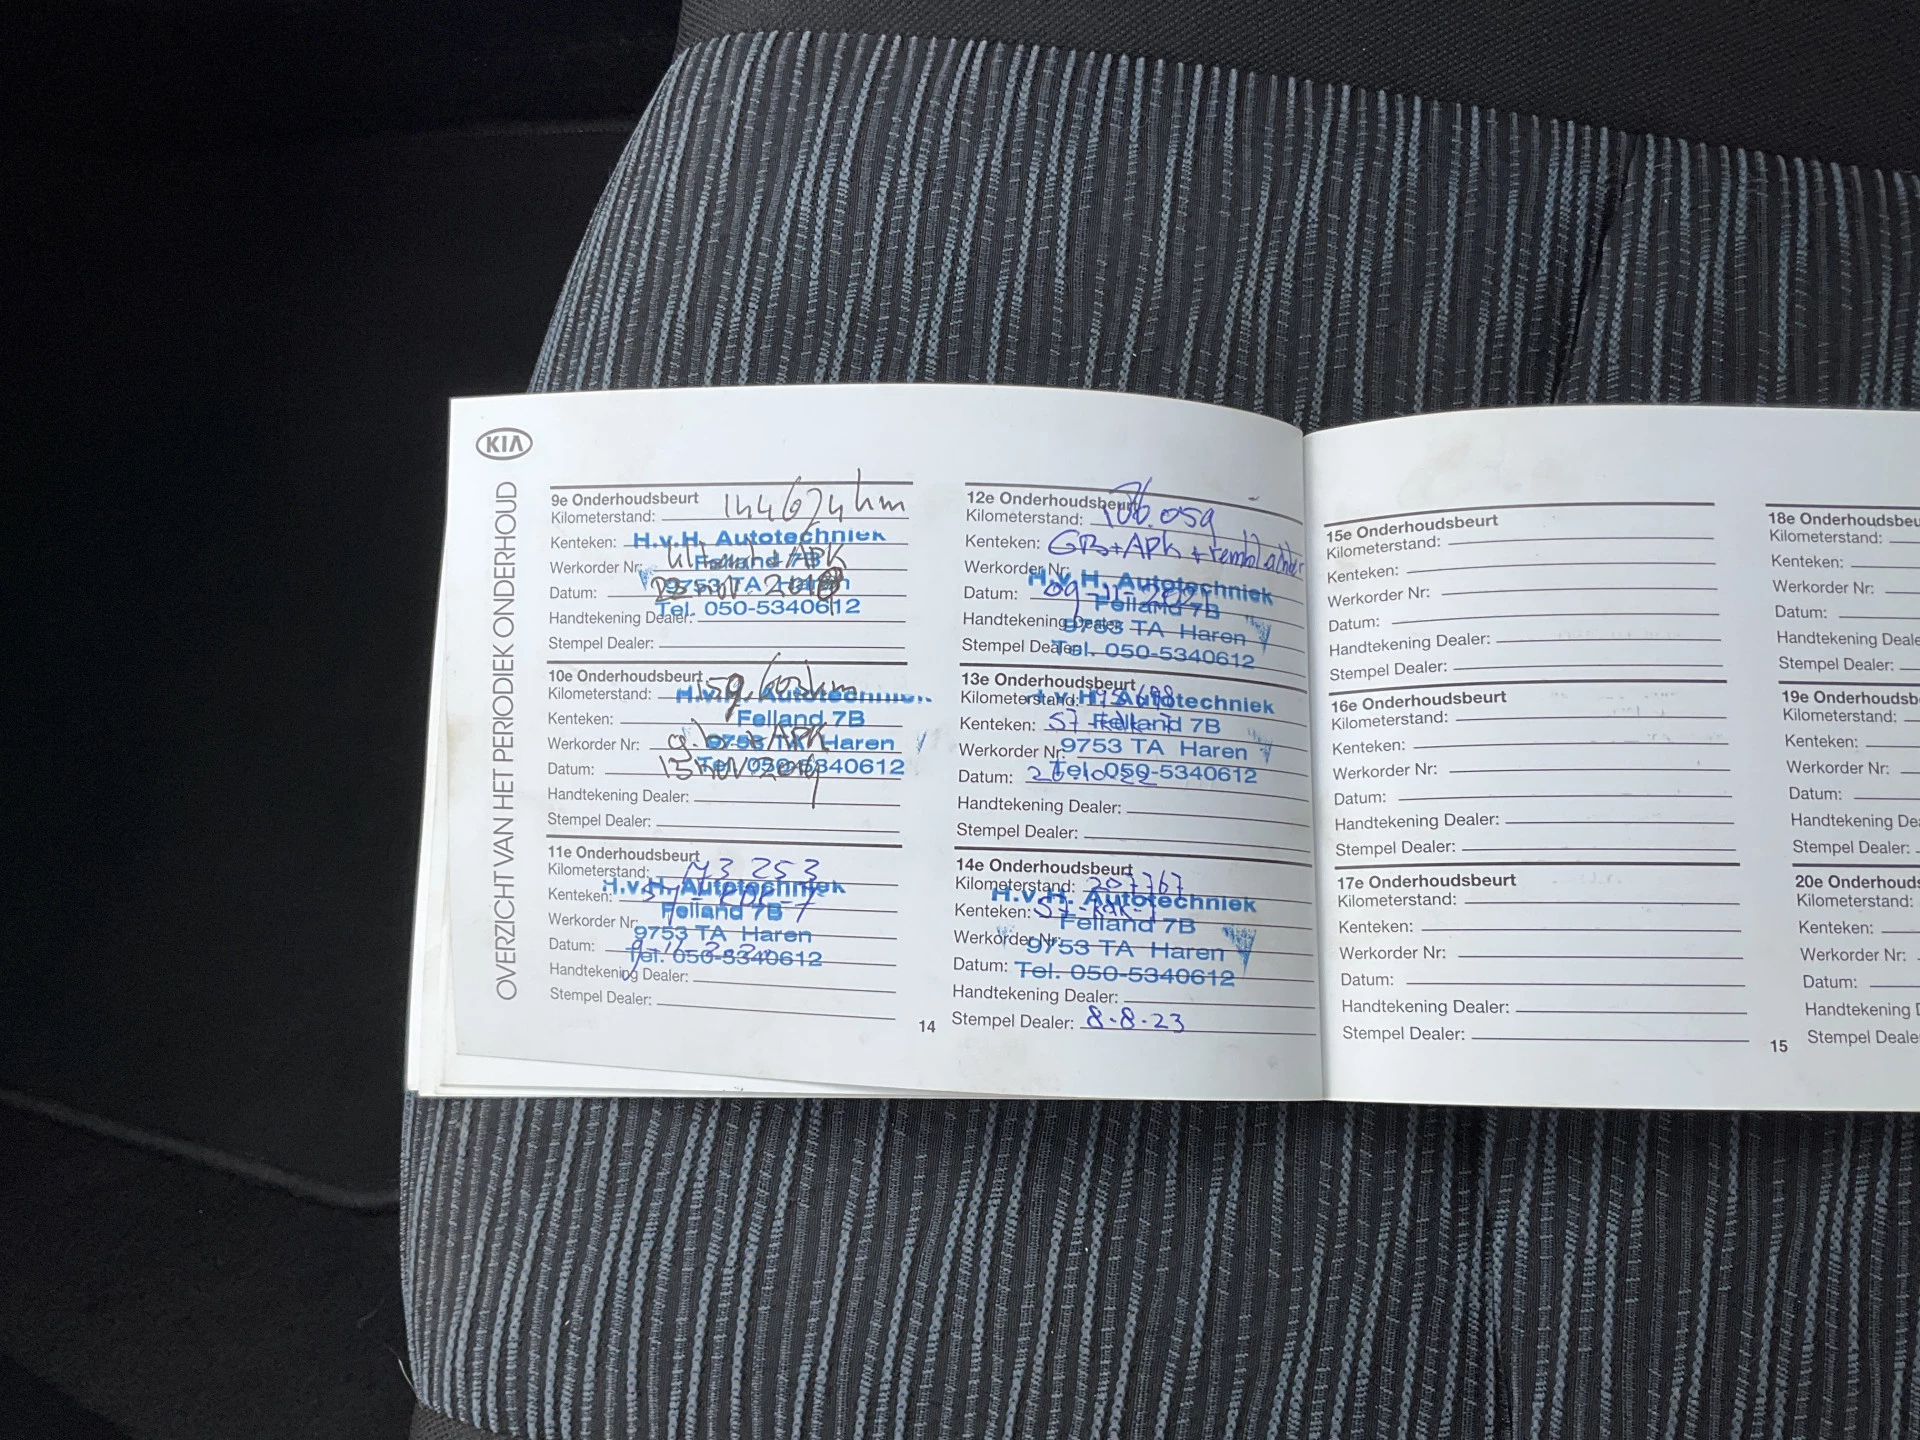 KIA
OVERZICHT VAN HET PERIODIEK ONDERHOUD
9e Onderhoudsbeurt
Kilometerstand: 144624 km
Kenteken: H.v.H. Autotechniek
Felland 7B
+ APK
Werkorder Nr:
9753 TA Haren
Datum: NOV 2018
Tel. 050-5340612
Handtekening Dealer:
Stempel Dealer:
10e Onderhoudsbeurt
Kilometerstand: 159.603 km
H.v.H. Autotechniek
Kenteken: Felland 7B
Werkorder Nr: g.b + APK
9753 TA Haren
Datum: 15 NOV 2019
Tel. 050-5340612
Handtekening Dealer:
Stempel Dealer:
11e Onderhoudsbeurt
Kilometerstand: 173 253
H.v.H. Autotechniek
Kenteken:
Felland 7B
Werkorder Nr:
9753 TA Haren
Datum:
Tel. 050-5340612
Handtekening Dealer:
Stempel Dealer:
12e Onderhoudsbeurt
Kilometerstand: 186.059
Kenteken: GB + APK +
Werkorder Nr:
H.v.H. Autotechniek
Datum: 09-11-2021
Felland 7B
Handtekening Dealer:
9753 TA Haren
Stempel Dealer:
Tel. 050-5340612
13e Onderhoudsbeurt
Kilometerstand:
H.v.H. Autotechniek
Kenteken: 57
Felland 7B
Werkorder Nr:
9753 TA Haren
Datum:
Tel. 050-5340612
Handtekening Dealer:
Stempel Dealer:
14e Onderhoudsbeurt
Kilometerstand: 207767
H.v.H. Autotechniek
Kenteken: 57
Felland 7B
Werkorder Nr:
9753 TA Haren
Datum:
Tel. 050-5340612
Handtekening Dealer:
Stempel Dealer: 8-8-23
14
15e Onderhoudsbeurt
Kilometerstand:
Kenteken:
Werkorder Nr:
Datum:
Handtekening Dealer:
Stempel Dealer:
16e Onderhoudsbeurt
Kilometerstand:
Kenteken:
Werkorder Nr:
Datum:
Handtekening Dealer:
Stempel Dealer:
17e Onderhoudsbeurt
Kilometerstand:
Kenteken:
Werkorder Nr:
Datum:
Handtekening Dealer:
Stempel Dealer:
15
18e Onderhoudsbeu
Kilometerstand:
Kenteken:
Werkorder Nr:
Datum:
Handtekening Deale
Stempel Dealer:
19e Onderhoudsb
Kilometerstand:
Kenteken:
Werkorder Nr:
Datum:
Handtekening De
Stempel Dealer:
20e Onderhouds
Kilometerstand:
Kenteken:
Werkorder Nr:
Datum:
Handtekening D
Stempel Deale